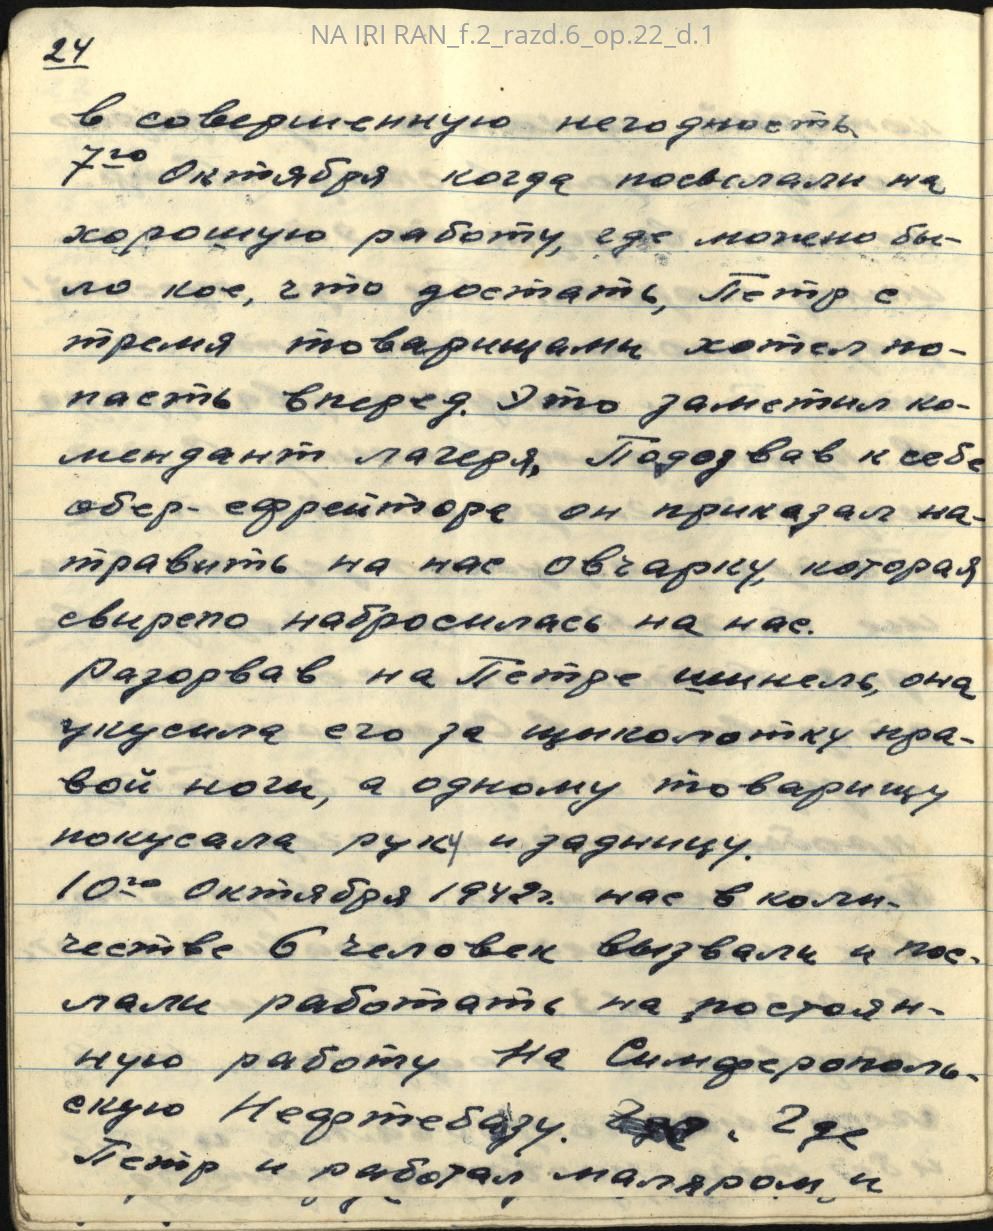 NA IRI RAN_f.2_razd.6_op.22_d.1
24
в совершенную негодность
7го Октября когда посылали на
хорошую работу, где можно бы-
ло кое, что достать, Петр с
тремя товарищами хотел по-
пасть вперед. Это заметил ко-
мендант лагеря, Подозвав к себе
обер-ефрейтора он приказал на-
травить на нас овчарку, которая
свирепо набросилась на нас.
Разорвав на Петре шинель, она
укусила его за щиколотку пра-
вой ноги, а одному товарищу
покусала руку и задницу.
10го Октября 1942г. нас в коли-
честве 6 человек вызвали и пос-
лали работать на постоян-
ную работу на Симферополь-
скую Нефтебазу. Где
Петр и работал маляром, и